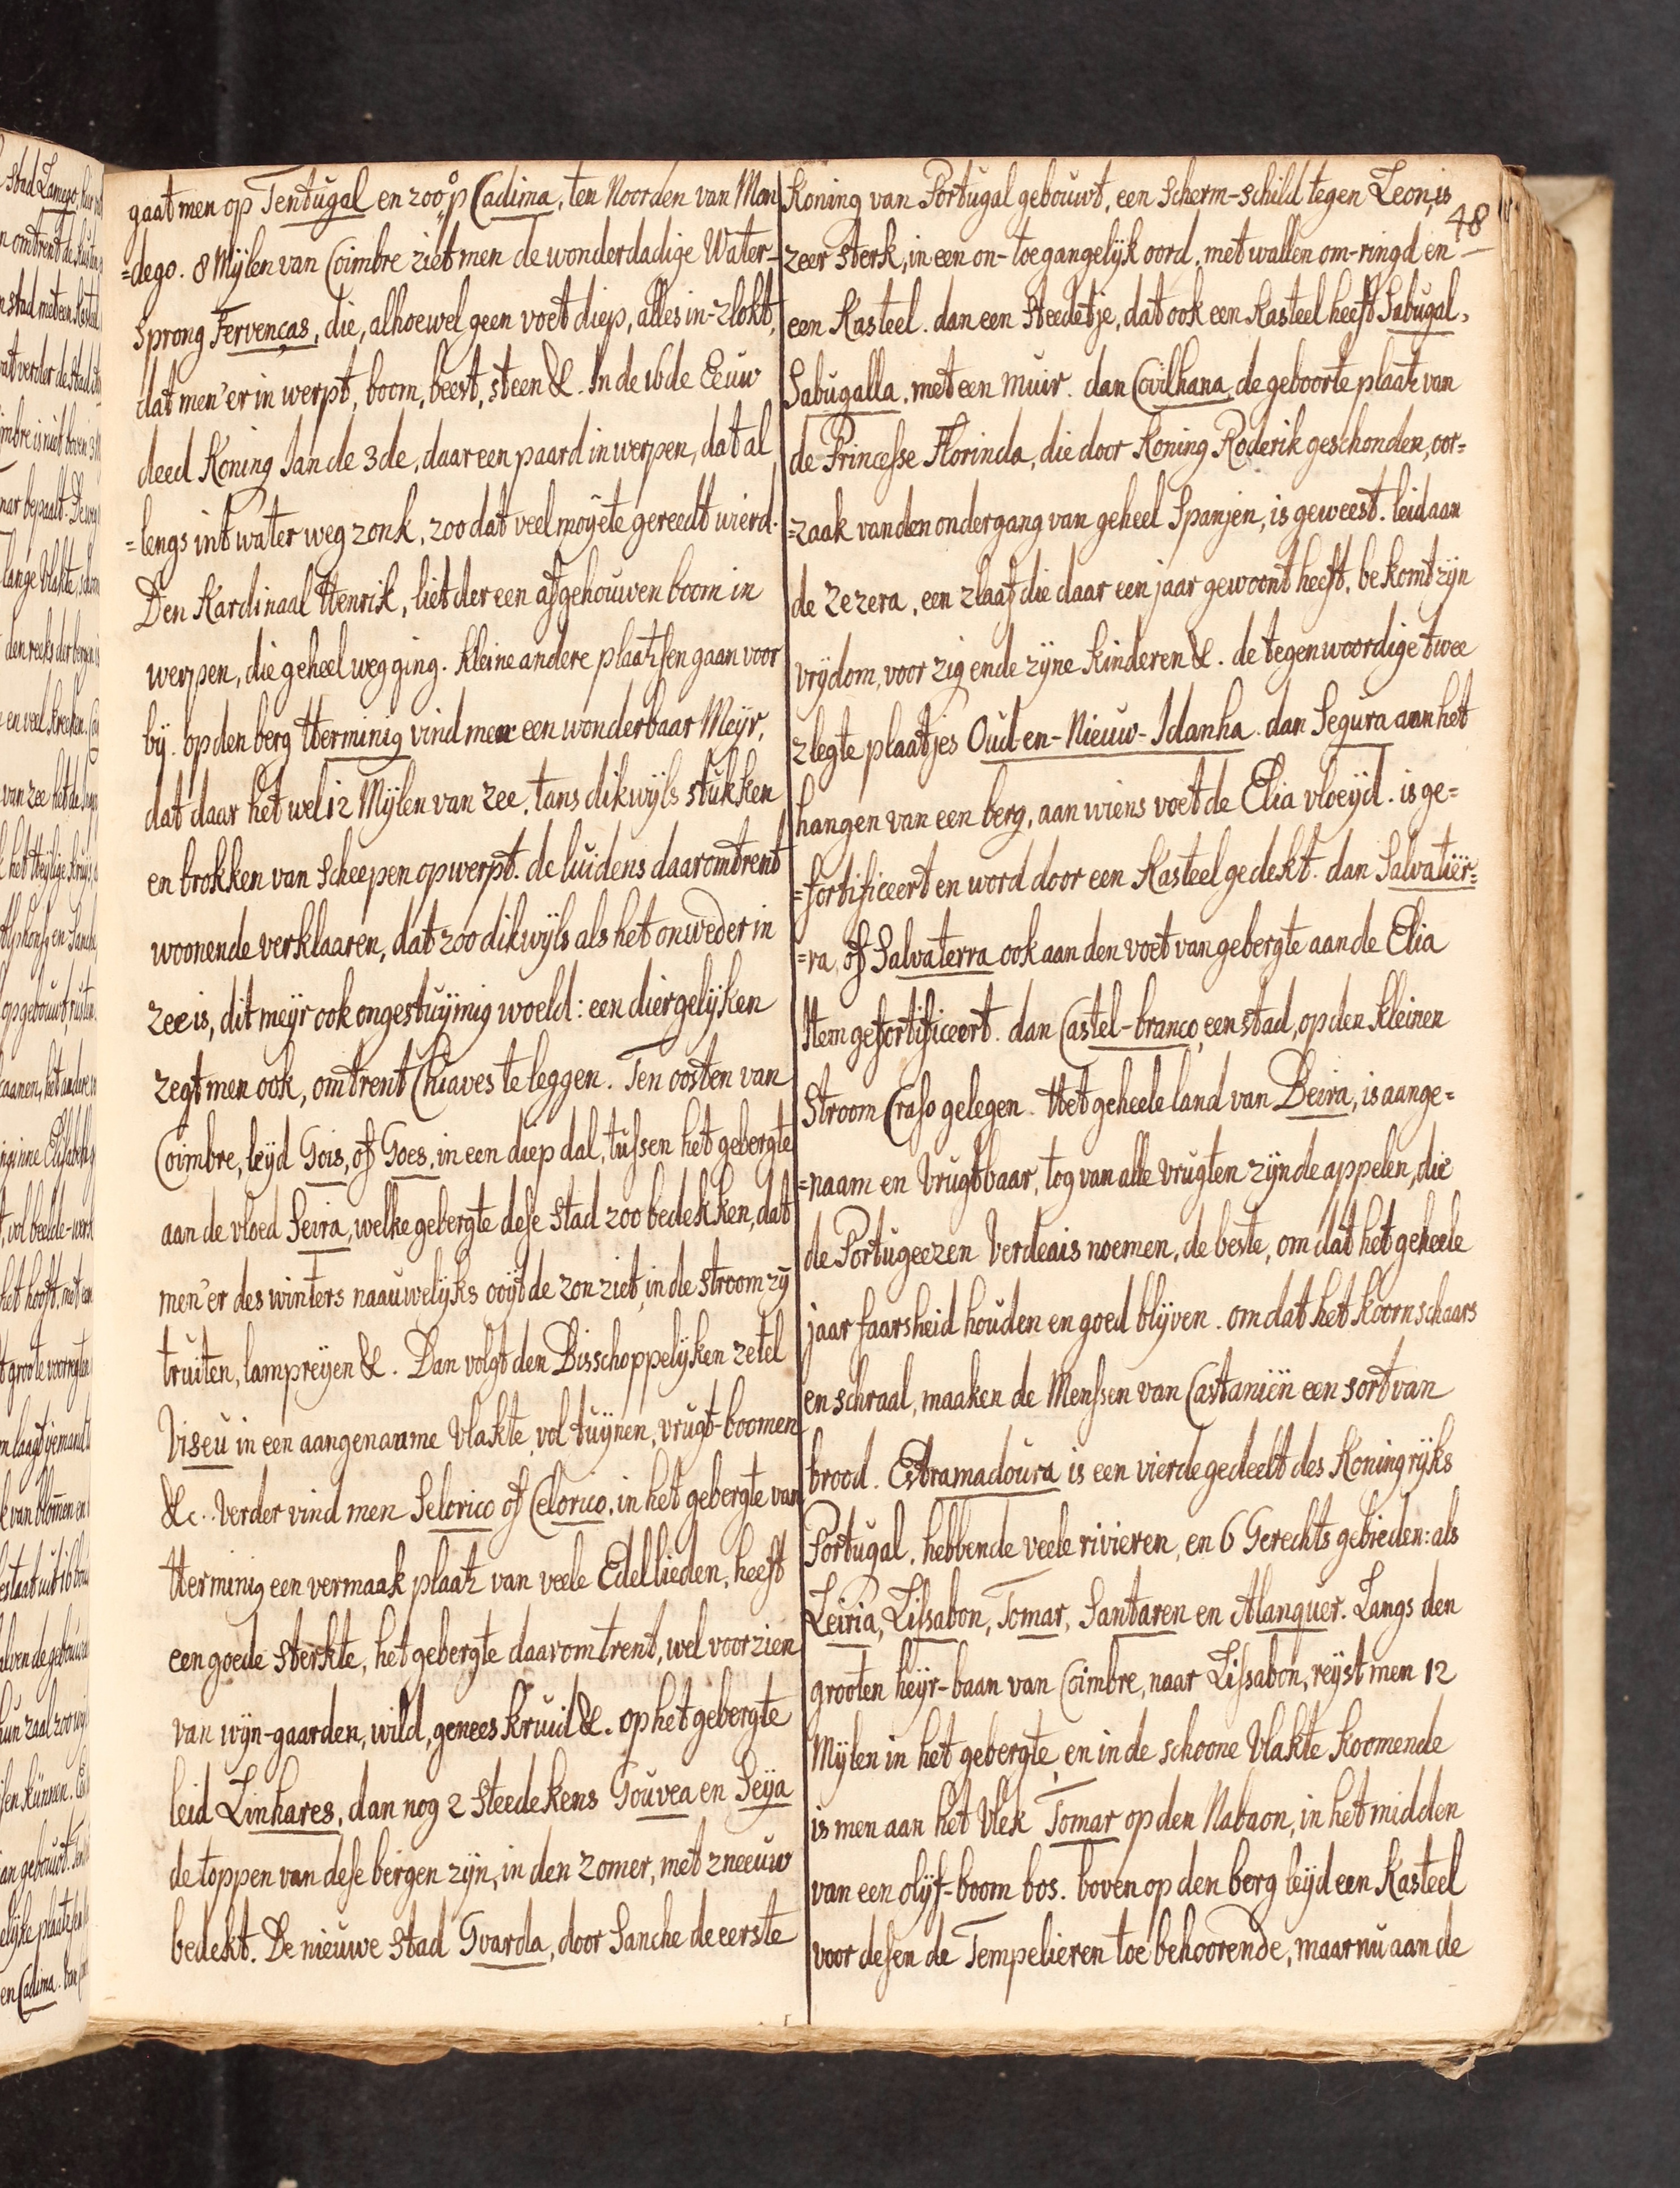 gaat men op Tentugal en zoo op Cadima, ten Noorden van Mon
=dego. 8 Mÿlen van Coimbre ziet men de wonderdadige Water-
sprong Fervenças, die, alhoewel geen voet diep, alles in-zlokt,
dat men'er in werpt, boom, beest, steen &. In de 16de Eeuw
deed Koning Jan de 3de, daar een paard in werpen, dat al
=lengs int water weg zonk, zoo dat veel moÿete gereedt wierd.
Den Kardinaal Henrik, liet der een afgehouwen boom in
werpen, die geheel weg ging. Kleine andere plaatzsen gaan voor
bÿ. op den berg Herminig vind men een wonderbaar Meÿr,
dat daar het wel 12 Mÿlen van zee, tans dikwÿls stukken
en brokken van scheepen opwerpt. de luidens daaromtrent
woonende verklaaren, dat zoo dikwÿls als het onweder in
zee is, dit meÿr ook ongestuÿmig woeld: een diergelÿken
zegt men ook, omtrent Chiaves te leggen. Ten oosten van
Coimbre, leÿd Gois, of Goes, in een diep dal, tussen het gebergte
aan de vloed Seira, welke gebergte dese stad zoo bedekken, dat
men'er des winters naauwelÿks ooÿt de zon ziet, in de stroom zÿ
truiten, lampreÿen &. Dan volgt den Bisschoppelÿken zetel
Viseu in een aangenaame vlakte, vol tuÿnen, vrugt-boomen
&c. verder vind men Selorico of Celorico, in het gebergte van
Herminig een vermaak plaatz van veele Edellieden, heeft
een goede sterkte, het gebergte daaromtrent, wel voorzien
van wÿn-gaarden, wild, genees kruid &. op het gebergte
leid Linhares, dan nog 2 steedekens Gouvea en Seÿa
de toppen van dese bergen zÿn, in den zomer, met zneeuw
bedekt. De nieuwe stad Gvarda, door Sanche de eerste
Koning van Portugal gebouwt, een scherm-schild tegen Leon, is
48
zeer sterk, in een on-toegangelÿk oord, met wallen om-ringd en
een Kasteel. dan een steedetje, dat ook een Kasteel heeft Sabugal,
Sabugalla, met een muir. dan Covilhana, de geboorte plaatz van
de Princesse Florinda, die door Koning Roderik geschonden, oor=
=zaak van den ondergang van geheel Spanjen, is geweest. leid aan
de Zezera, een zlaaf die daar een jaar gewoont heeft, bekomt zÿn
vrÿdom, voor zig ende zÿne Kinderen &. de tegenwoordige twee
zlegte plaatjes Oud-en-Nieuw-Idanha. dan Segura aan het
hangen van een berg, aan wiens voet de Elia vloeÿd. is ge=
=fortificeert en word door een Kasteel gedekt. dan Salvatiër=
=ra, of Salvaterra ook aan den voet van gebergte aan de Elia
Item gefortificeert. dan Castel-branco, een stad, op den kleinen
stroom Craso gelegen. Het geheele land van Beira, is aange=
=naam en vrugtbaar, tog van alle vrugten zÿn de appelen, die
de Portugeezen Verdeais noemen, de beste, om dat het geheele
jaar faarsheid houden en goed blÿven. om dat het Koorn schaars
en schraal, maaken de Menssen van Castaniën een sort van
brood. Estramadoura is een vierde gedeelt des Koningrÿks
Portugal, hebbende veele rivieren, en 6 Gerechts gebieden: als
Leiria, Lissabon, Tomar, Santaren en Alanquer. Langs den
grooten heÿr-baan van Coimbre, naar Lissabon, reÿst men 12
Mÿlen in het gebergte, en in de schoone vlakte koomende
is men aan het vlek Tomar op den Nabaon, in het midden
van een olÿf-boom bos. boven op den berg leÿd een Kasteel
voor desen de Tempelieren toe behoorende, maar nu aan de